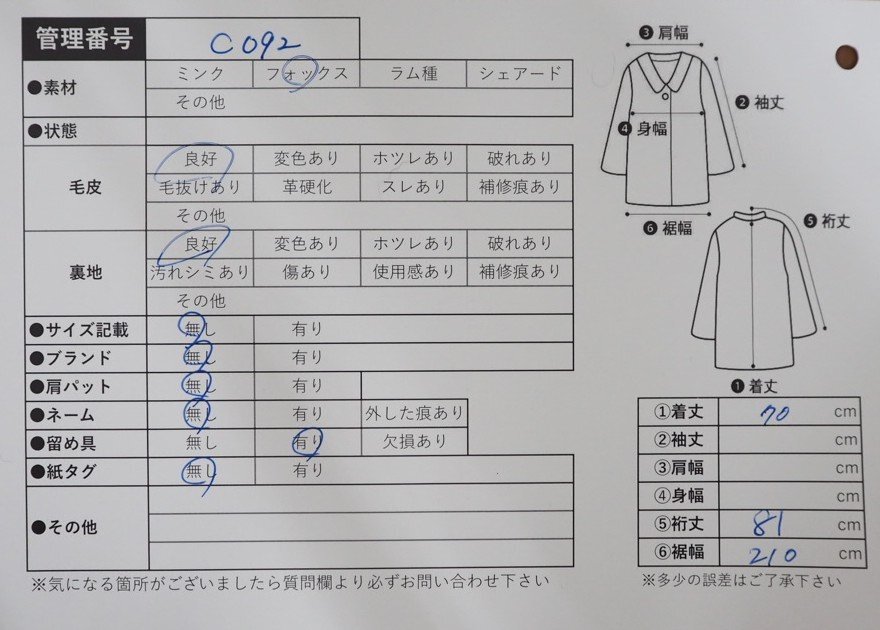 管理番号 C092
●素材 ミンク フォックス ラム種 シェアード
その他
●状態
毛皮 良好 変色あり ホツレあり 破れあり
毛抜けあり 革硬化 スレあり 補修痕あり
その他
裏地 良好 変色あり ホツレあり 破れあり
汚れシミあり 傷あり 使用感あり 補修痕あり
その他
●サイズ記載 無し 有り
●ブランド 無し 有り
●肩パット 無し 有り
●ネーム 無し 有り 外した痕あり
●留め具 無し 有り 欠損あり
●紙タグ 無し 有り
●その他
※気になる箇所がございましたら質問欄より必ずお問い合わせ下さい
❸ 肩幅
❷ 袖丈
❹ 身幅
❻ 裾幅
❺ 裄丈
❶ 着丈
①着丈 70 cm
②袖丈 cm
③肩幅 cm
④身幅 cm
⑤裄丈 81 cm
⑥裾幅 210 cm
※多少の誤差はご了承下さい